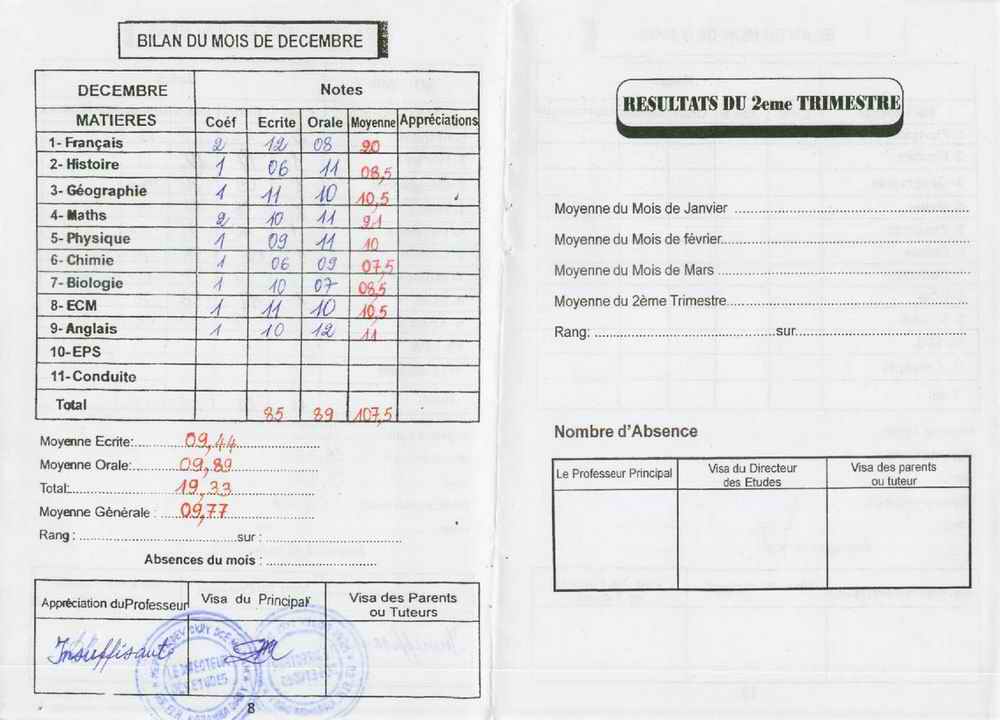 BILAN DU MOIS DE DECEMBRE
DECEMBRE Notes
MATIERES Coéf Ecrite Orale Moyenne Appréciations
1- Français 2 12 08 20
2- Histoire 1 06 11 08,5
3- Géographie 1 11 10 10,5
4- Maths 2 10 11 21
5- Physique 1 09 11 10
6- Chimie 1 06 09 07,5
7- Biologie 1 10 07 08,5
8- ECM 1 11 10 10,5
9- Anglais 1 10 12 11
10- EPS
11- Conduite
Total 85 89 107,5
Moyenne Ecrite: 09,44
Moyenne Orale: 09,89
Total: 19,33
Moyenne Générale : 09,77
Rang : sur :
Absences du mois :
Appréciation du Professeur Visa du Principal Visa des Parents ou Tuteurs
Insuffisant
LE DIRECTEUR
DES ETUDES
8
RESULTATS DU 2eme TRIMESTRE
Moyenne du Mois de Janvier
Moyenne du Mois de février
Moyenne du Mois de Mars
Moyenne du 2ème Trimestre
Rang: sur
Nombre d'Absence
Le Professeur Principal Visa du Directeur des Etudes Visa des parents ou tuteur